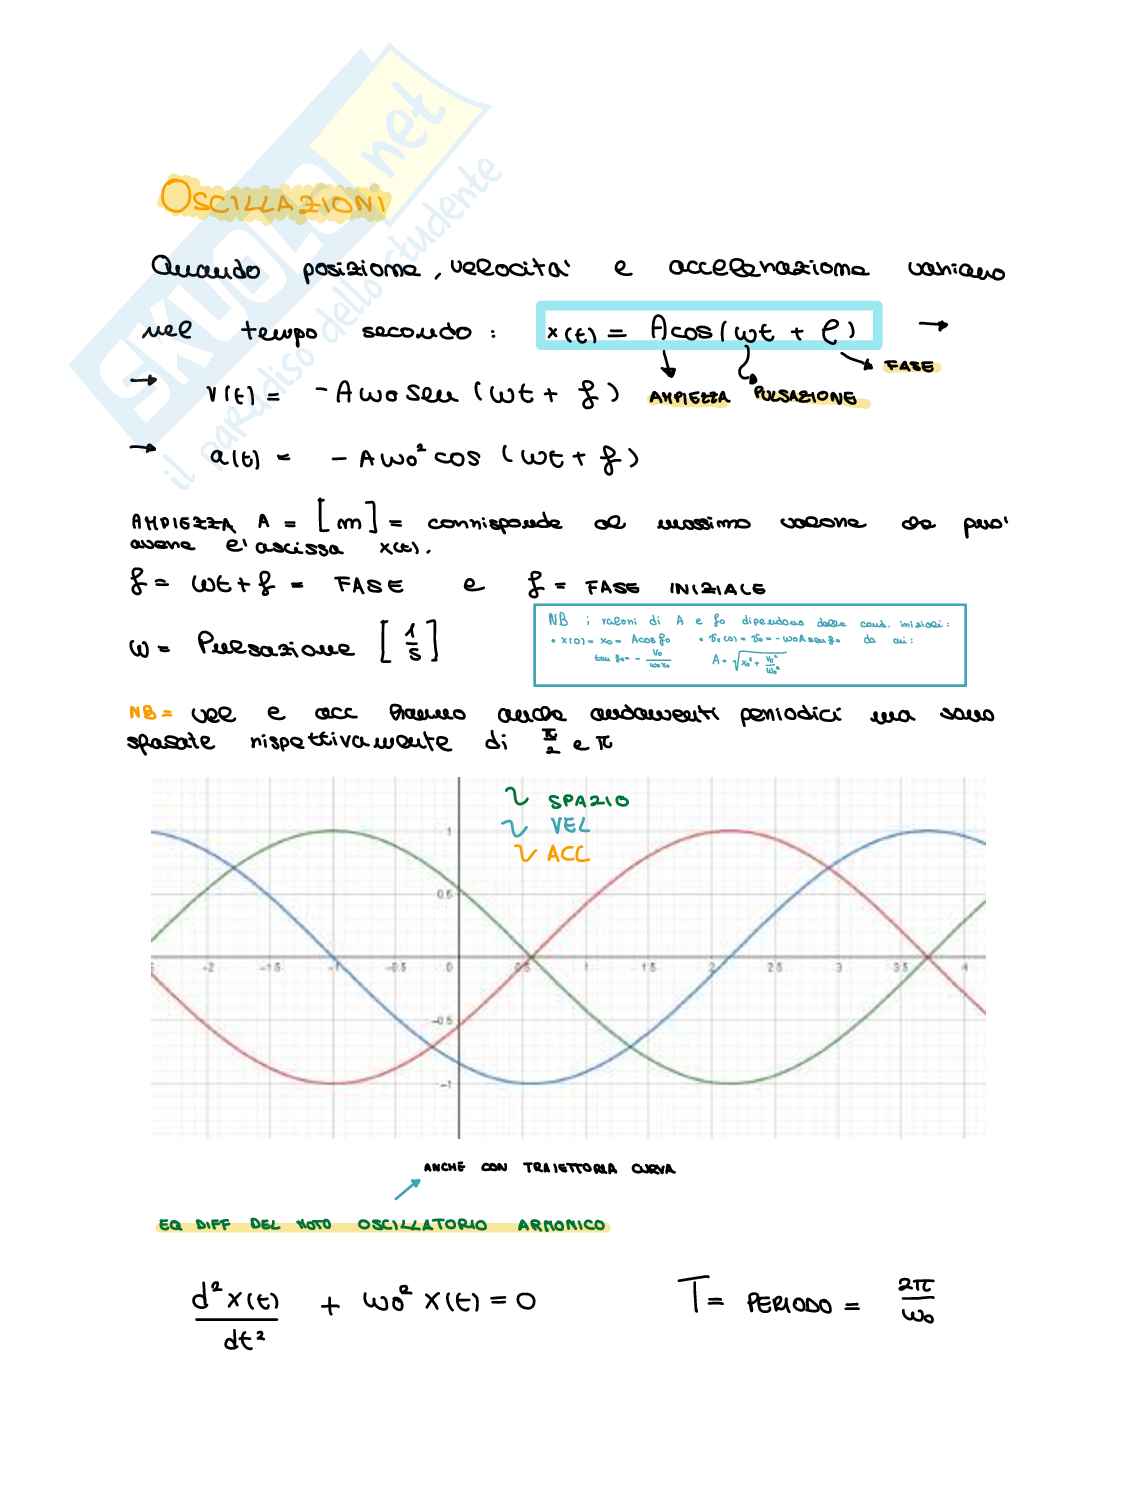 SKUOLA.net
il paradiso dello studente
OSCILLAZIONI
Quando posizione, velocità e accelerazione variano
nel tempo secondo: x(t) = A cos(ωt + φ) →
FASE
→ v(t) = - A ω₀ sen (ωt + φ) AMPIEZZA PULSAZIONE
→ a(t) = - A ω₀² cos (ωt + φ)
AMPIEZZA A = [m] = corrisponde al massimo valore che può
avere l'ascissa x(t).
φ = ωt + φ = FASE e φ = FASE INIZIALE
ω = Pulsazione [1/s]
NB i valori di A e φ₀ dipendono dalle cond. iniziali:
• x(0) = x₀ = A cos φ₀ • v(0) = v₀ = - ω₀ A sen φ₀ da cui:
tan φ₀ = - v₀/ω₀x₀ A = √x₀² + v₀²/ω₀²
NB = vel e acc hanno anche andamenti periodici ma sono
sfasate rispettivamente di π/2 e π
SPAZIO
VEL
ACC
1
0.5
-2 -1.5 -1 -0.5 0 0.5 1 1.5 2 2.5 3 3.5 4
-0.5
-1
ANCHE CON TRAIETTORIA CURVA
EQ DIFF DEL MOTO OSCILLATORIO ARMONICO
d²x(t)/dt² + ω₀² x(t) = 0 T = PERIODO = 2π/ω₀